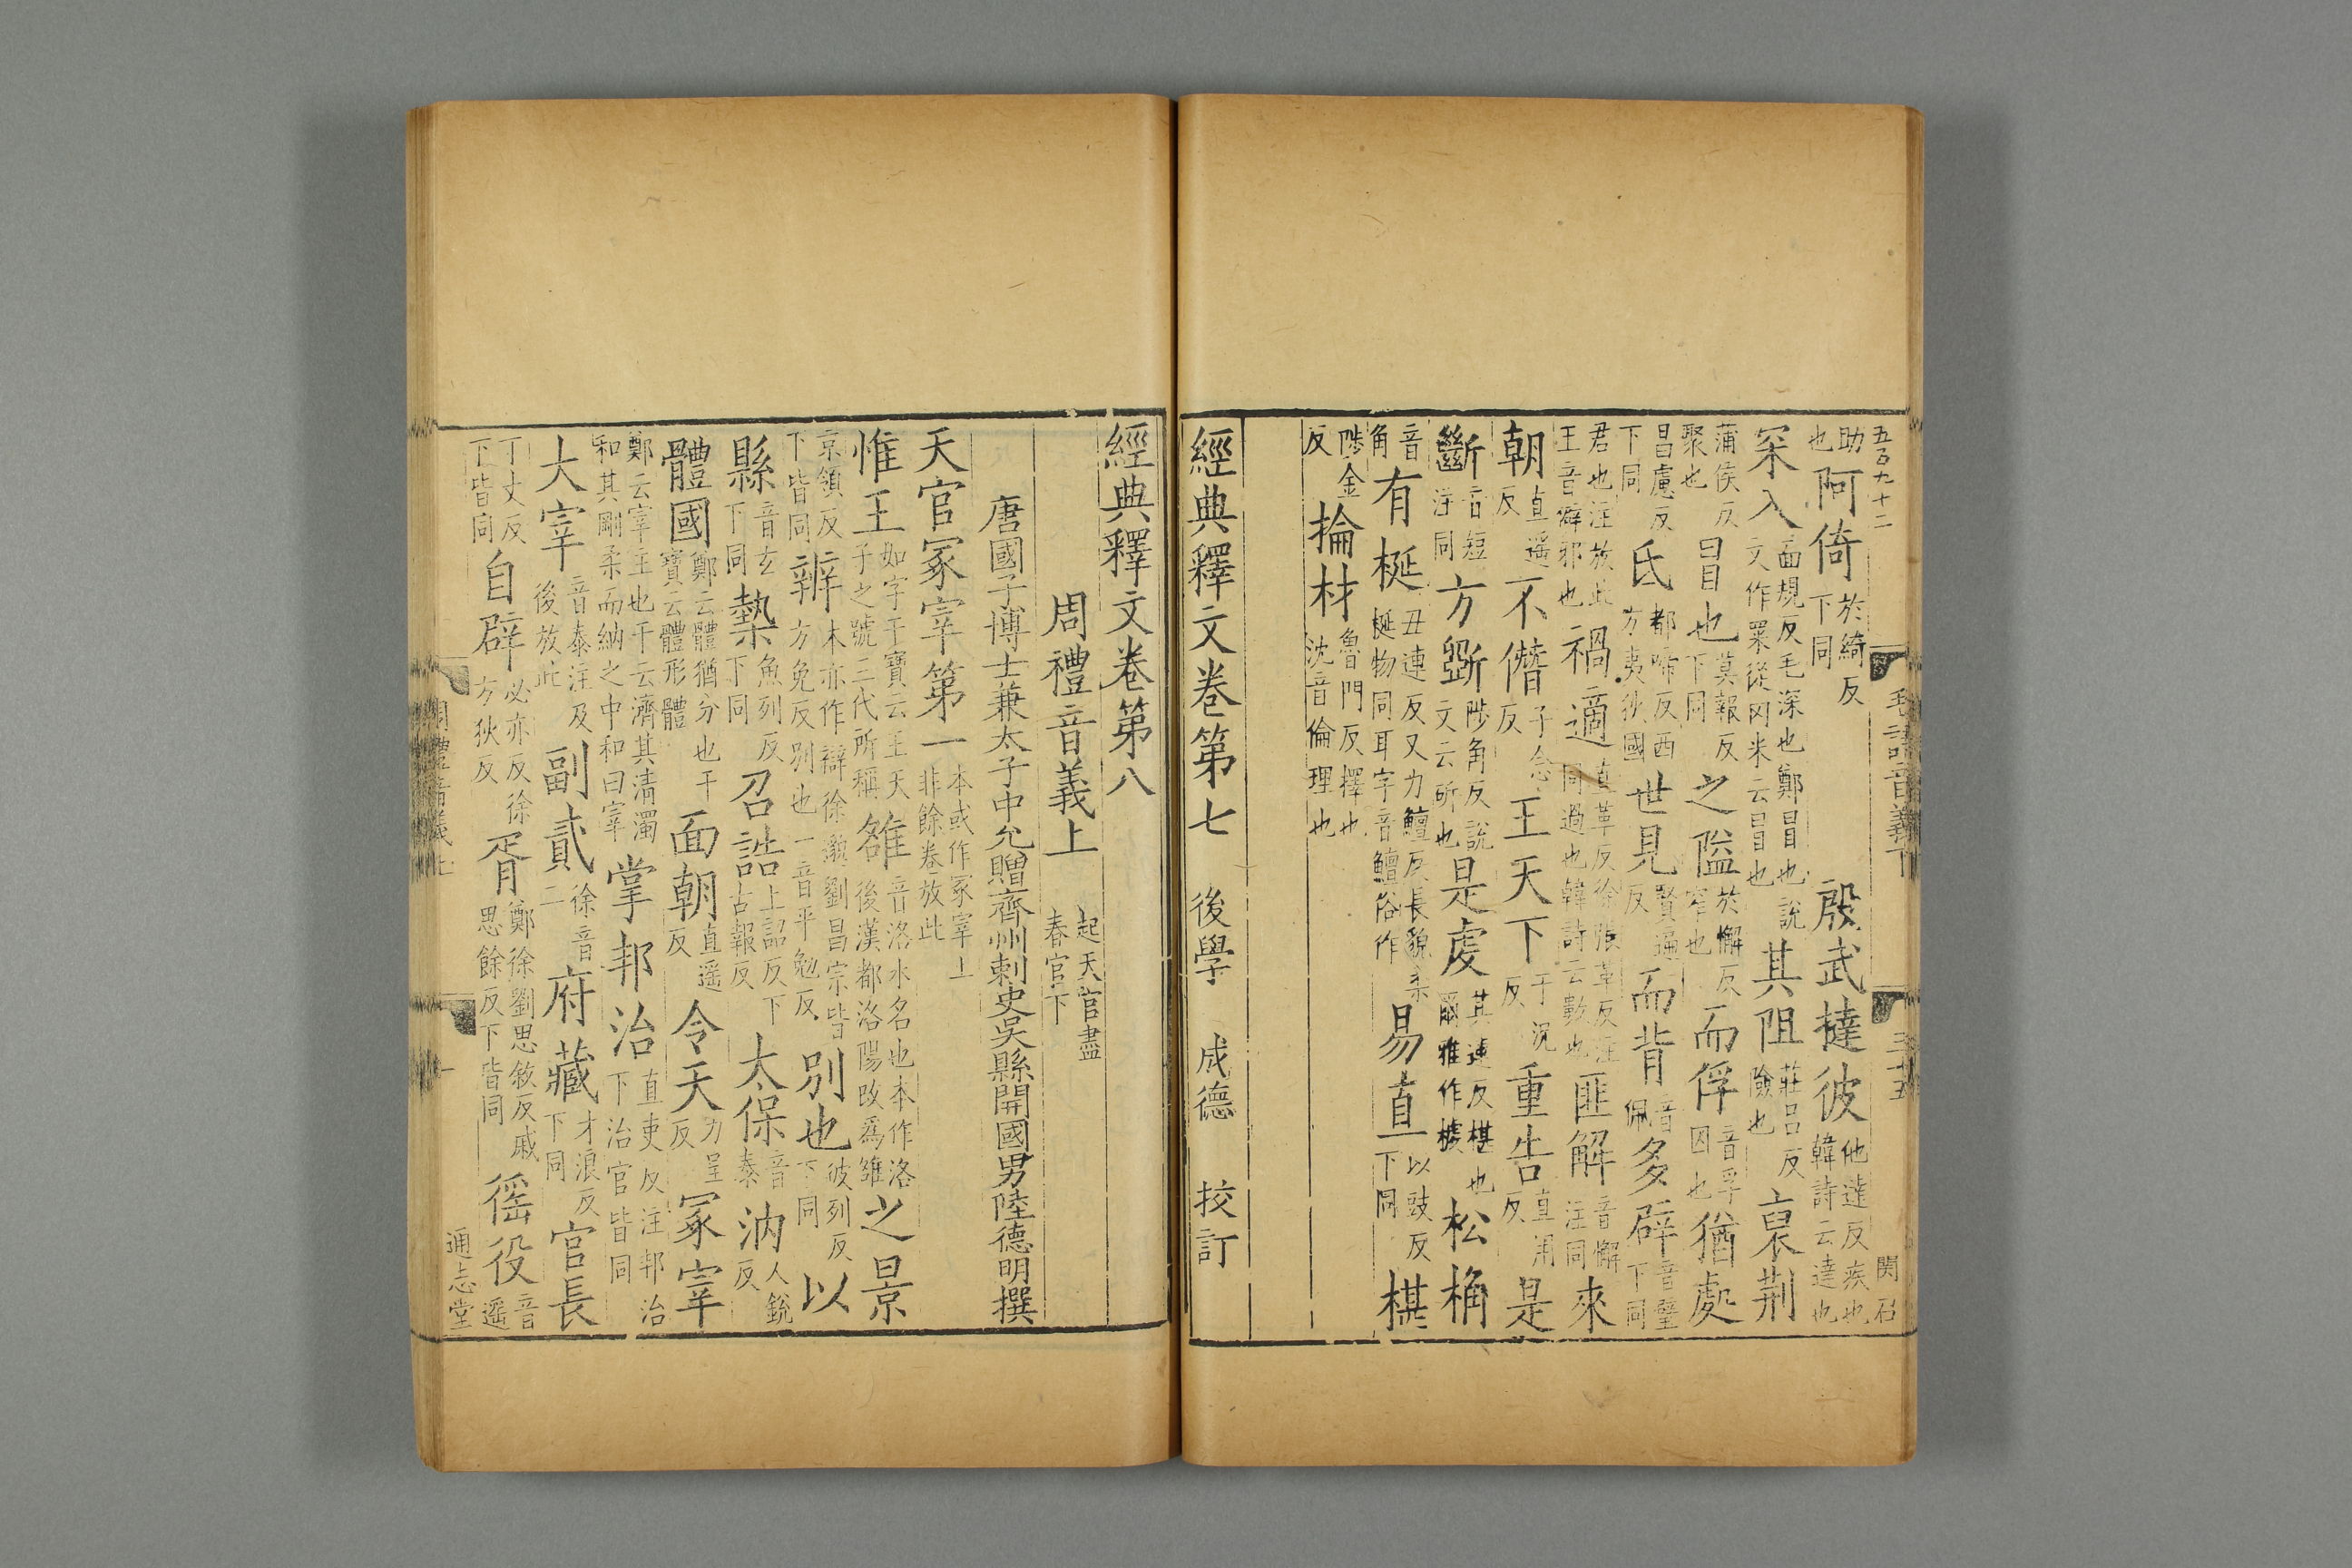 五百九十二
毛詩音義下
三十五
助也阿倚於綺反下同殷武撻彼他達反疾也韓詩云達也
罙入面規反毛深也鄭冒也說文作罙從冈米云冒也其阻莊呂反險也裒荊
蒲侯反聚也冒也莫報反下同之隘於懈反窄也而俘音孚囚也猶處
昌慮反下同氐都啼反西方夷狄國世見賢遍反而背音佩多辟音璧下同
君也注放此王音僻邪也禍適直革反徐張革反注同過也韓詩云數也匪解音懈注同來
朝直遥反不僭子念反王天下于況反重告直用反是
斷音短注同方斲陟角反說文云斫也是虔其連反椹也爾雅作榩松桷
音角有梴丑連反又力鱣反長貌柔梴物同耳字音鱣俗作易直以豉反下同椹
陟金反掄材魯門反擇也沈音倫理也
經典釋文卷第七 後學 成德 校訂
經典釋文卷第八
周禮音義上起天官盡春官下
唐國子博士兼太子中允贈齊州刺史吳縣開國男陸德明撰
天官冢宰第一本或作冢宰上非餘卷放此
惟王如字干寶云王天子之號三代所稱雒音洛水名也本作洛後漢都洛陽改為雒之景
京領反下皆同辨本亦作辯徐邈劉昌宗皆方免反別也一音平勉反別也彼列反下同以
縣音玄下同槷魚列反下同召誥上詔反下古報反太保音泰汭人銳反
體國鄭云體猶分也干寶云體形體面朝直遥反令天力呈反冢宰
鄭云宰主也干云濟其清濁和其剛柔而納之中和曰宰掌邦治直吏反注邦治下治官皆同
大宰音泰注及後放此副貳徐音二府藏才浪反下同官長
丁丈反下皆同自辟必亦反徐方狄反胥鄭徐劉思敘反戚思餘反下皆同徭役音遥
周禮音義上
一
通志堂